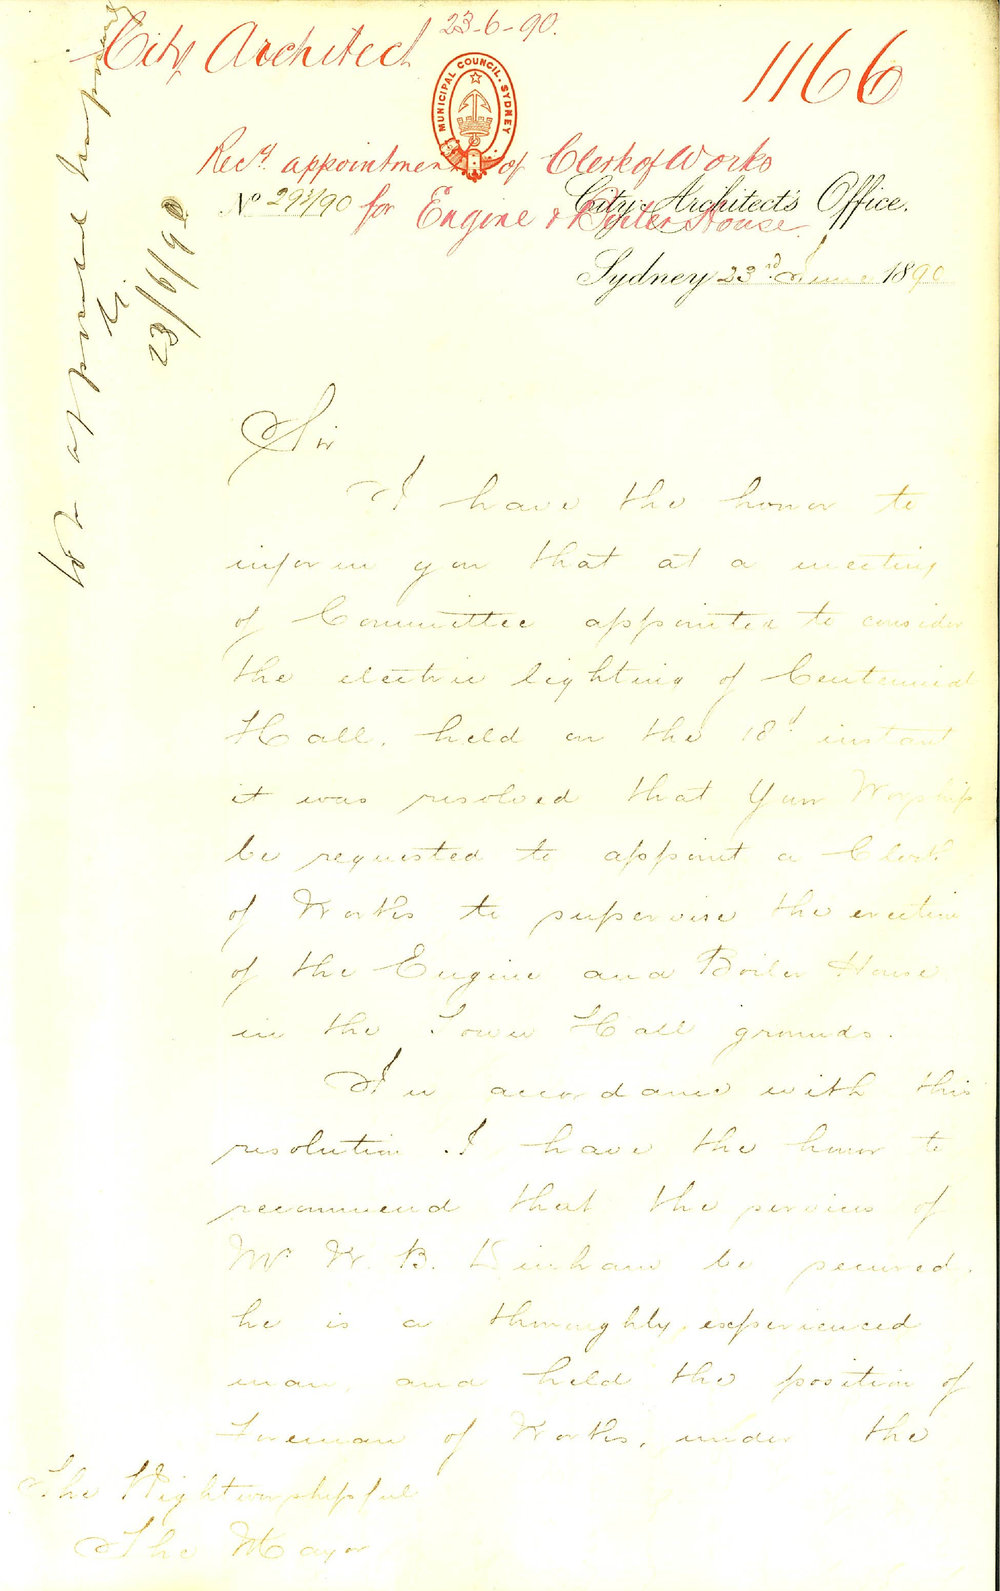 City Architect 23-6-90.
1166
MUNICIPAL COUNCIL. SYDNEY
Rec'd. appointment of Clerk of Works
for Engine & Boiler House.
No 293/90
City Architect's Office.
Sydney 23rd June 1890
not approved
23/6/90
Sir
I have the honor to
inform you that at a meeting
of Committee appointed to consider
the electric lighting of Centennial
Hall, held on the 18th instant
it was resolved that Your Worship
be requested to appoint a Clerk
of Works to supervise the erection
of the Engine and Boiler House
in the Town Hall grounds.
In accordance with this
resolution I have the honor to
recommend that the services of
Mr W. B. be secured,
he is a thoroughly experienced
man, and held the position of
Foreman of Works, under the
The Right worshipful
The Mayor